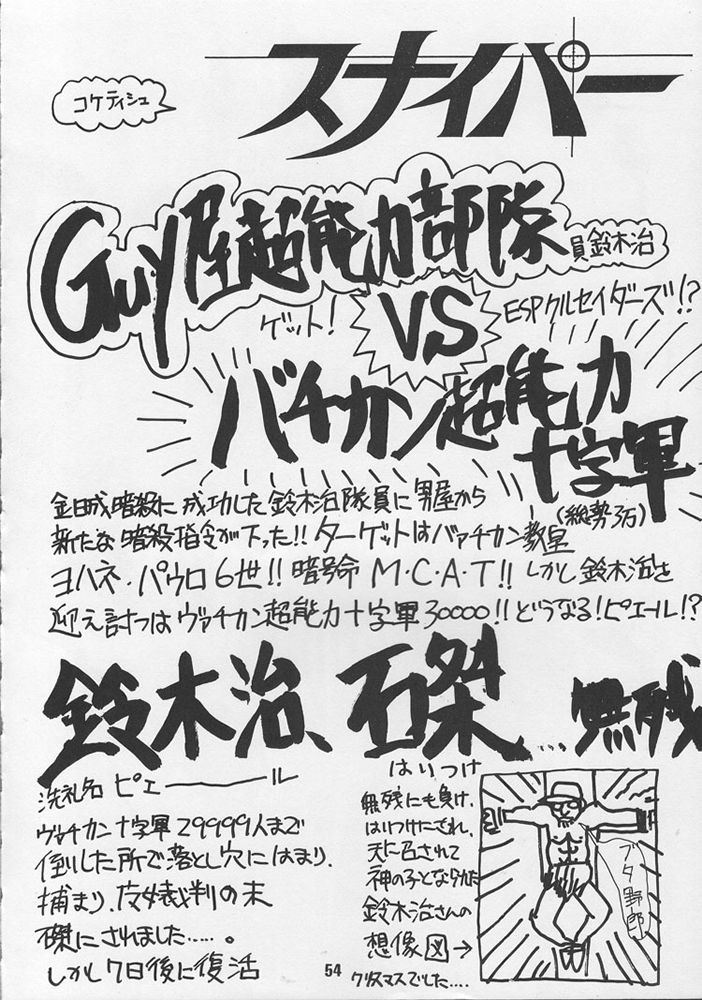 コケティシュ
スナイパー
Guy屋超能力部隊員鈴木治
ゲット!
VS
ESPクルセイダーズ!?
バチカン超能力
十字軍
(総勢3万)
金日成暗殺に成功した鈴木治隊員に男屋から
新たな暗殺指令が下った!!ターゲットはバァチカン教皇
ヨハネ・パウロ6世!!暗号命M・C・A・T!!しかし鈴木治を
迎え討つはヴァチカン超能力十字軍30000!!どうなる!ピエール!?
鈴木治、磔....無残
はいつけ
洗礼名ピエール
ヴァチカン十字軍29999人まで
倒した所で落とし穴にはまり、
捕まり、魔女裁判の末
磔にされました.....。
しかし7日後に復活
無残にも負け、
はいつけにされ、
天に召されて
神の子となられた
鈴木治さんの
想像図→
クリスマスでした....
ブタ野郎
54